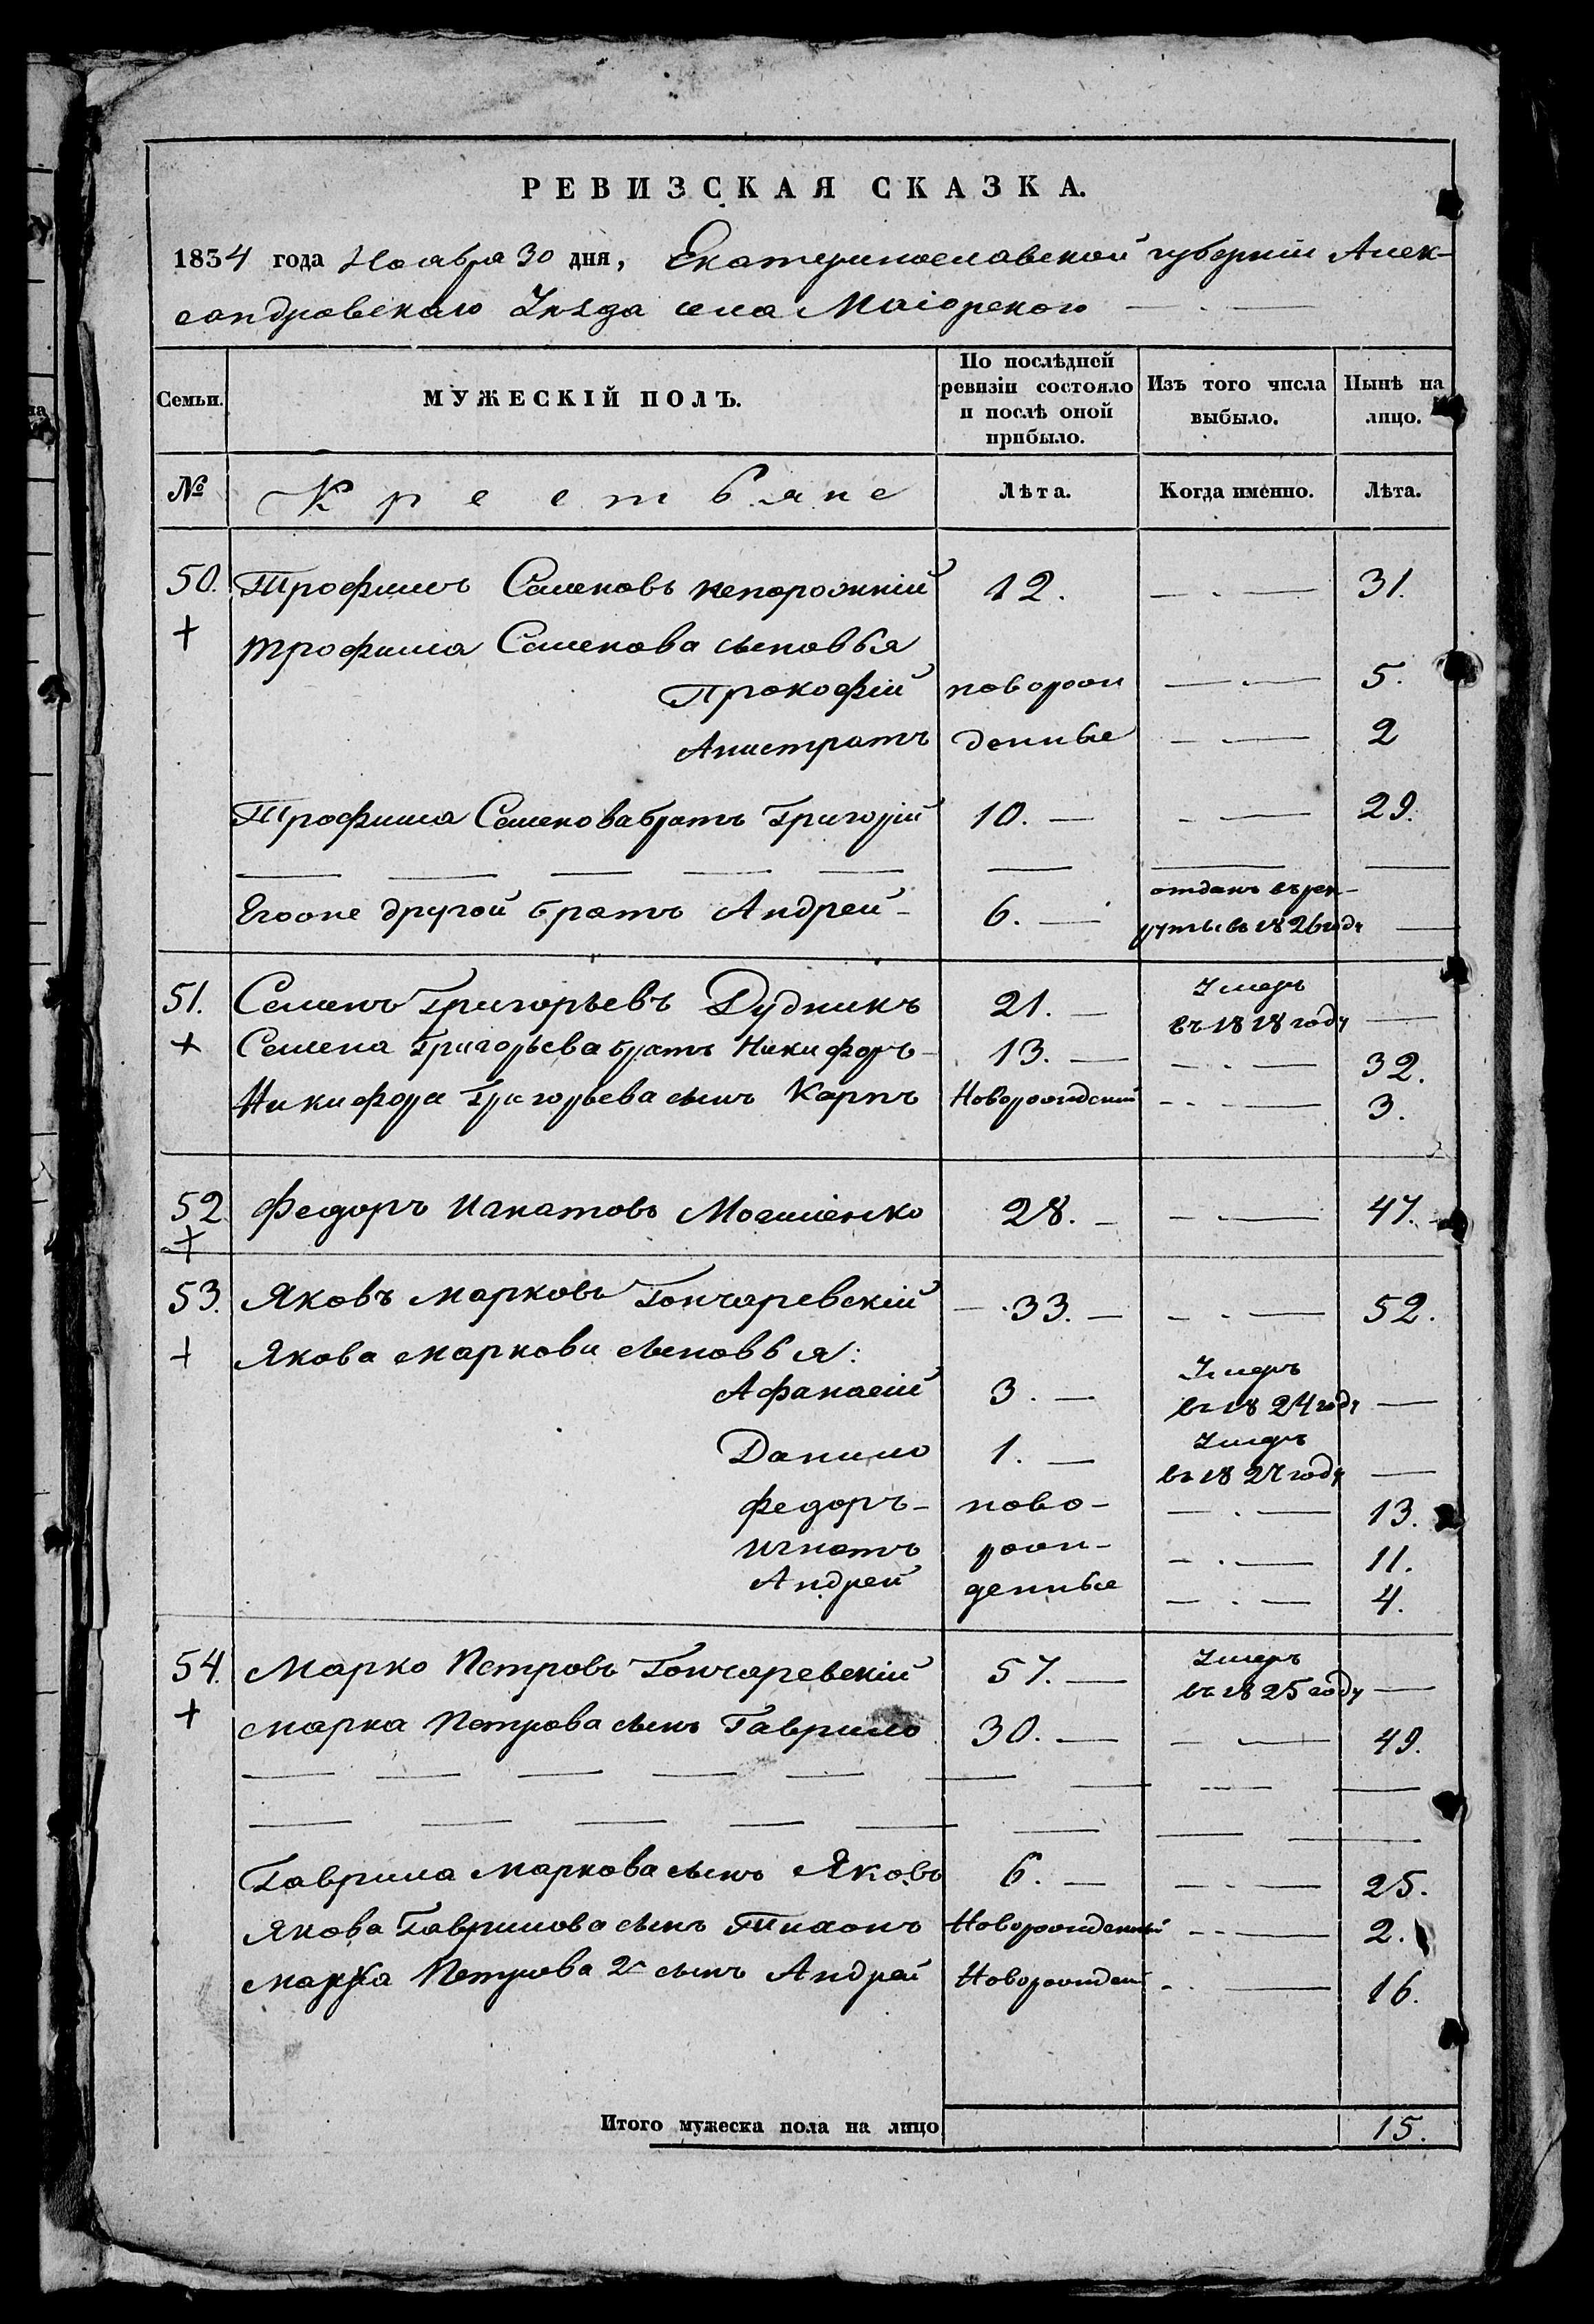 РЕВИЗСКАЯ СКАЗКА.
1834 года Ноября 30 дня, Екатеринославской губерніи Алек-
сандровскаго Уѣзда села Маіорского
Семьи. МУЖЕСКІЙ ПОЛЪ. По послѣдней ревизіи состояло и послѣ оной прибыло. Изъ того числа выбыло. Нынѣ на лицо.
№ Крестьяне Лѣта. Когда именно. Лѣта.
50. Трофимъ Семеновъ Непорожній 12. — 31.
+ Трофима Семенова сыновья
Прокофій новорож — 5.
Анистратъ денные — 2
Трофима Семенова братъ Григорій 10. — 29.
Егоже другой братъ Андрей 6. — отданъ въ рек-
руты въ 1826 году —
51. Семенъ Григорьевъ Дудникъ 21. — Умеръ въ 1818 году —
+ Семена Григорьева братъ Никифоръ 13. — 32.
Никифора Григорьева сынъ Карпъ Новорожденный — 3.
52 Федоръ Игнатовъ 28. — 47.
+
53. Яковъ Марковъ Гончаревскій — 33. — 52.
+ Якова Маркова сыновья:
Афанасій 3. — Умеръ въ 1824 году —
Данило 1. — Умеръ въ 1827 году —
Федоръ — ново- — 13.
Игнатъ рож- — 11.
Андрей денные — 4.
54. Марко Петровъ Гончаревскій 57. — Умеръ въ 1825 году —
+ Марка Петрова сынъ Гаврило 30. — 49.
Гаврила Маркова сынъ Яковъ 6. — 25.
Якова Гаврилова сынъ Тихонъ Новорожденный — 2.
Марка Петрова 2й сынъ Андрей Новорожден — 16.
Итого мужеска пола на лицо 15.